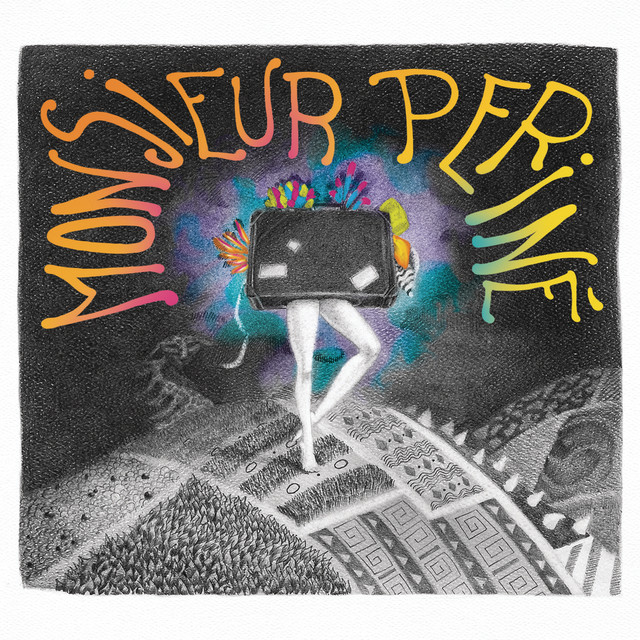 MONSIEUR PERINÉ